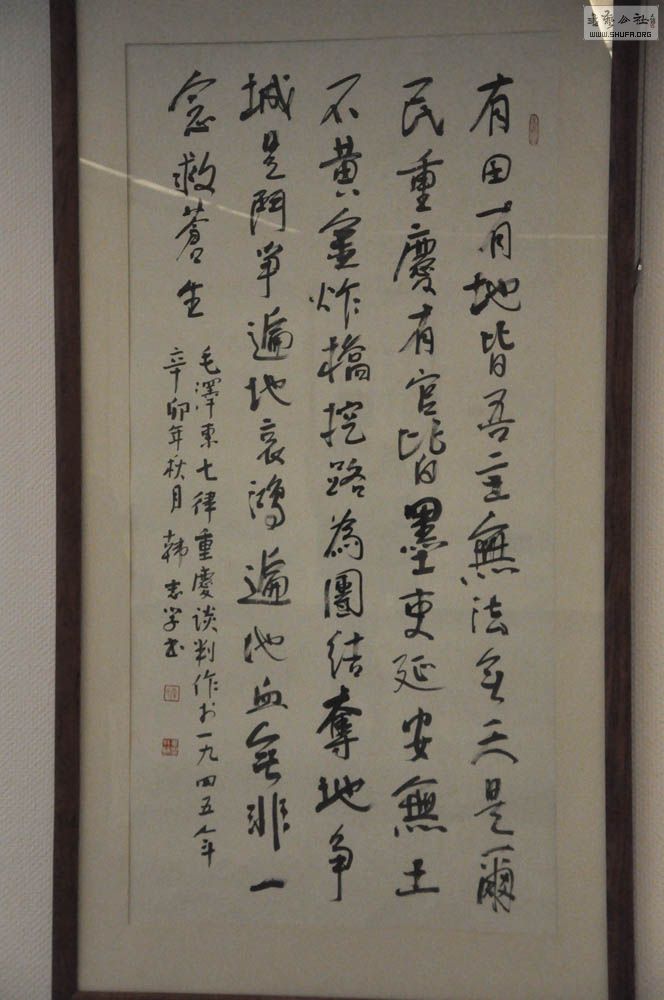 有田有地皆吾主無法無天是爾
民重慶有官皆墨吏延安無土
不黃金炸橋挖路為團結奪地爭
城是鬥爭遍地哀鴻遍地血無非一
念救蒼生
毛澤東七律重慶談判作於一九四五年
辛卯年秋月韓志學書
公社
WWW.SHUFA.ORG